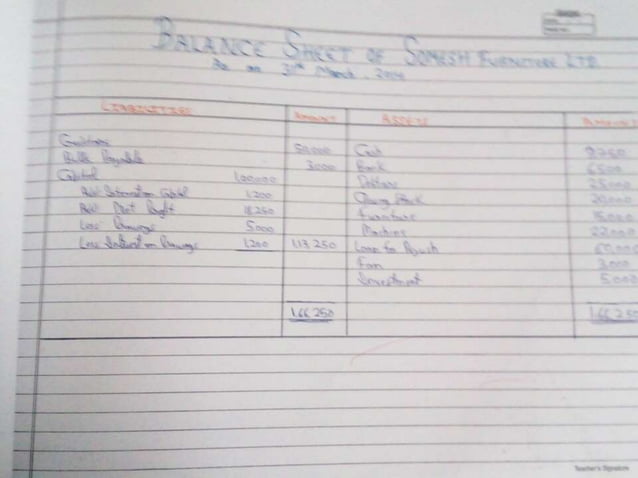 BALANCE SHEET OF SOMESH FURNITURE LTD.
As on 31st March, 2014
LIABILITIES AMOUNT ASSETS AMOUNT
Creditors 50,000 Cash 8250
Bills Payable 3000 Bank 6500
Capital 1,00,000 Debtors 25000
Add: Interest on Capital 1,200 Closing Stock 20,000
Add: Net Profit 18,250 Furniture 15,000
Less: Drawings 5000 Machine 22,000
Less: Interest on Drawings 1,200 1,13,250 Loan to Piyush
Fan 3,000
Investment 5000
1,66,250 1,66,250
Teacher's Signature